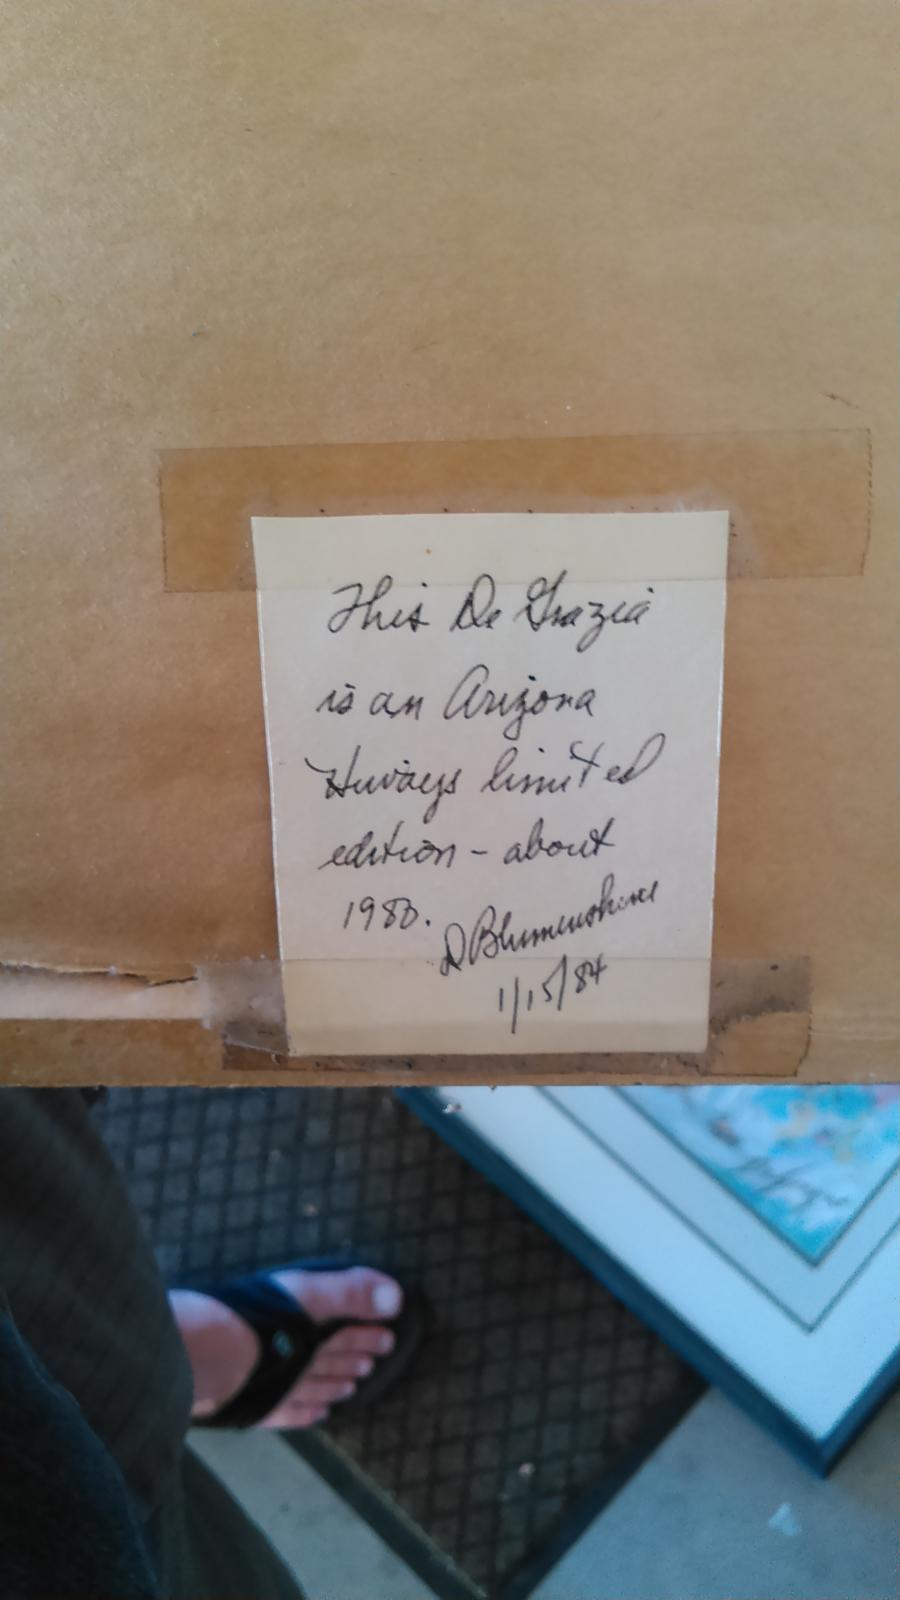 This De Grazia
is an Arizona
Hiways limited
edition - about
1983.
D Blumenshine
1/15/84